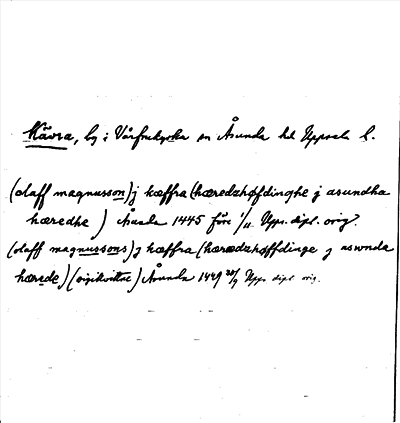 Kävra, by i Vårfrukyrka sn Åsunda hd Uppsala l.
(olaff magnusson) j kæffra (hæredzhøfdinghe j asundha
hæredhe) Åsunda 1445 före 1/11 Upps. dipl. orig.
(olaff magnussons) j kæffra (hæredzhøffdinge j aswnda
hærede) Åsunda 1449 Upps. dipl. orig.